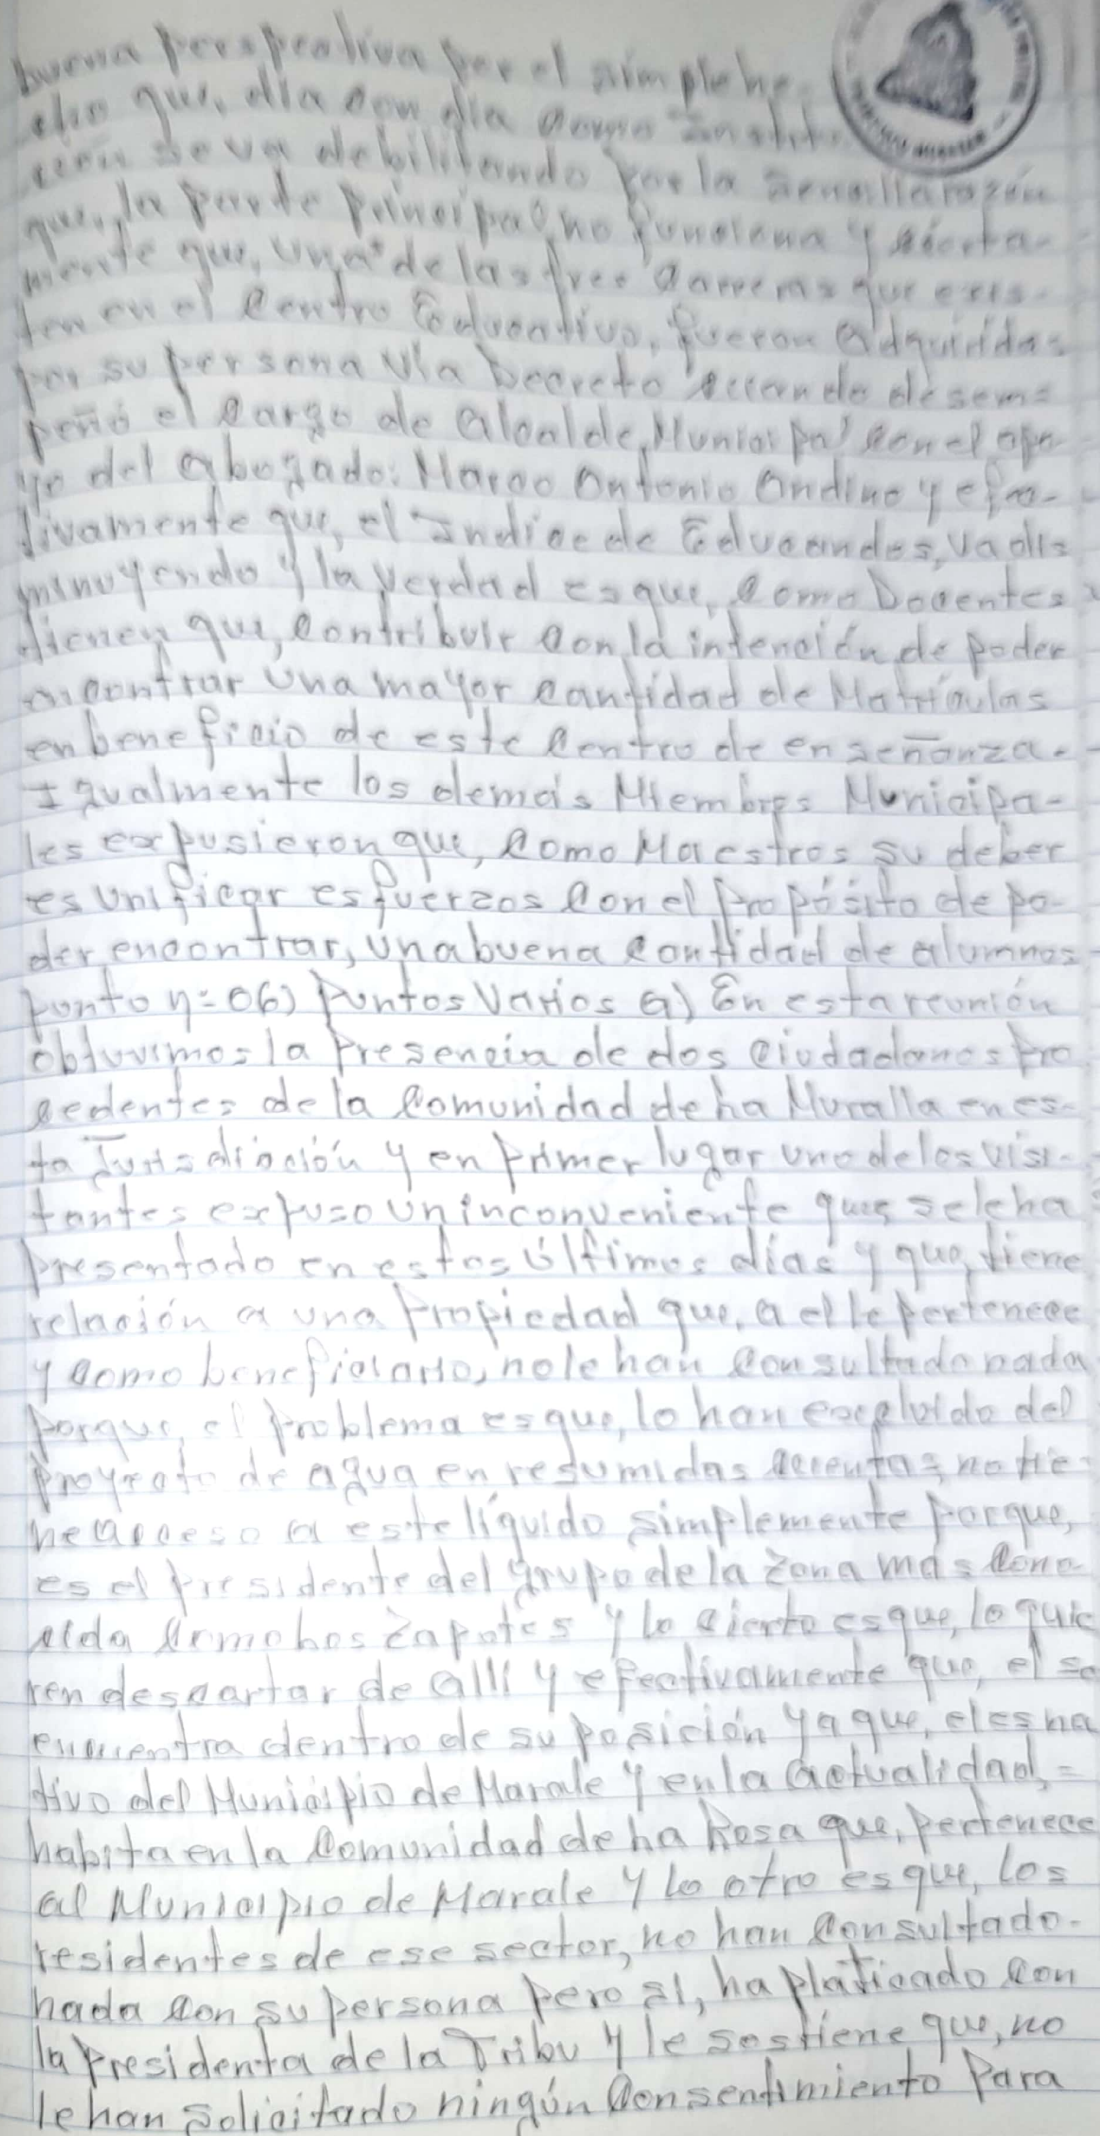 buena perspectiva por el simple he-
cho que, día con día como Instit-
ción se va debilitando por la sencilla razón
que, la parte principal no funciona y cierta-
mente que, una de las tres carreras que exis-
ten en el Centro Educativo, fueron adquiridas
por su persona Vía Decreto cuando desem=
peñó el cargo de Alcalde Municipal con el apo-
yo del abogado: Marco Antonio Andino y efec-
tivamente que, el Indice de Educandos, va dis=
minuyendo y la verdad es que, como Docentes
tienen que, contribuir con la intención de poder
encontrar una mayor cantidad de Matrículas
en beneficio de este Centro de enseñanza.
Igualmente los demás Miembros Municipa-
les expusieron que, como Maestros su deber
es unificar esfuerzos con el propósito de po-
der encontrar, una buena cantidad de alumnos
punto n=06) Puntos Varios a) En esta reunión
obtuvimos la Presencia de dos ciudadanos pro
cedentes de la Comunidad de La Muralla en es-
ta Jurisdicción y en primer lugar uno de los visi-
tantes expuso un inconveniente que, se le ha
presentado en estos últimos días y que, tiene
relación a una Propiedad que, a el le pertenece
y como beneficiario, no le han consultado nada
porque, el problema es que, lo han excluido del
proyecto de agua en resumidas cuentas, no tie-
ne acceso a este líquido simplemente porque,
es el presidente del grupo de la zona más cono-
cida como Los Zapotes y lo cierto es que, lo quie
ren descartar de allí y efectivamente que, el se
encuentra dentro de su posición ya que, el es na
tivo del Municipio de Marale y en la actualidad, =
habita en la Comunidad de La Rosa que, pertenece
al Municipio de Marale y lo otro es que, los
residentes de ese sector, no han consultado-
nada con su persona pero sí, ha platicado con
la Presidenta de la Tribu y le sostiene que, no
le han solicitado ningún Consentimiento Para